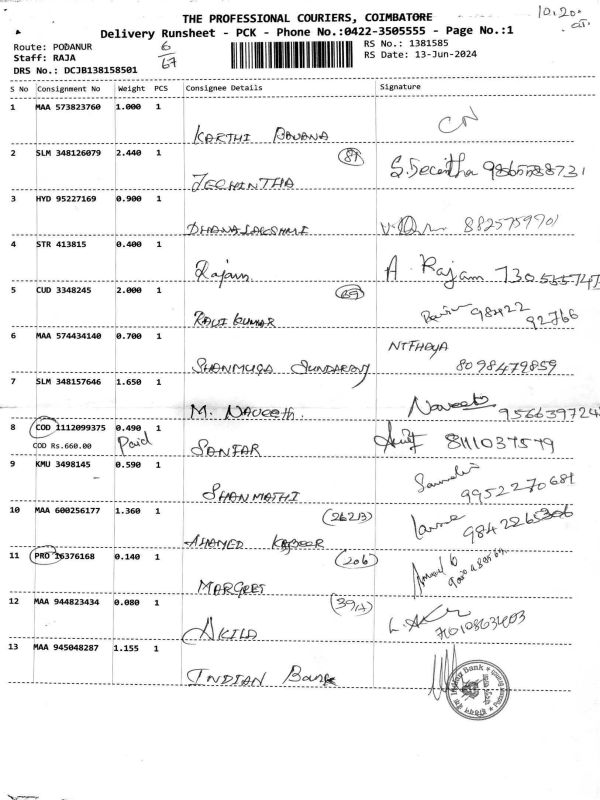 THE PROFESSIONAL COURIERS, COIMBATORE
10.20.
Delivery Runsheet - PCK - Phone No.:0422-3505555 - Page No.:1
Route: PODANUR 6 RS No.: 1381585
Staff: RAJA 67 RS Date: 13-Jun-2024
DRS No.: DCJB138158501
S No Consignment No Weight PCS Consignee Details Signature
1 MAA 573823760 1.000 1
KARTHI BAVANA CN
2 SLM 348126079 2.440 1 (81)
JECHINTHA 9865588731
3 HYD 95227169 0.900 1
DHANALAKSHMI 8825759901
4 STR 413815 0.400 1
Rajam A. Rajam
5 CUD 3348245 2.000 1 (69)
RAVI KUMAR 98422 92766
6 MAA 574434140 0.700 1 NITHAYA
SHANMUGA SUNDARAM 8098479859
7 SLM 348157646 1.650 1
M. Naveeth. Naveeth 956639724
8 COD 1112099375 0.490 1
COD Rs.660.00 Paid SANFAR 8111037579
9 KMU 3498145 0.590 1
SHANMATHI 9952270681
10 MAA 600256177 1.360 1 (262B)
AHAMED KABEER
11 PRO 16376168 0.140 1 (206)
MARGRET
12 MAA 944823434 0.080 1 (39A)
AKILA
13 MAA 945048287 1.155 1
INDIAN Bank
Indian Bank